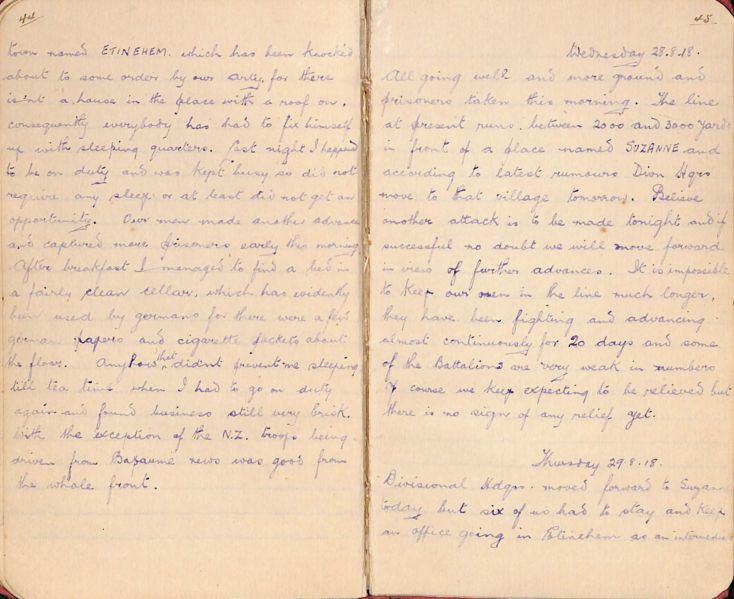 44
town named ETINEHEM. which has been knocked
about to some order by our arty, for there
is'nt a house in the place with a roof on,
consequently everybody has had to fix himself
up with sleeping quarters. Last night I happened
to be on duty and was kept busy so did not
require any sleep or at least did not get an
opportunity. Our men made another advance
and captured more prisoners early this morning
After breakfast I managed to find a bed in
a fairly clean cellar, which has evidently
been used by germans for there were a few
german papers and cigarette packets about
the floor. Anyhow that didn't prevent me sleeping
till tea time when I had to go on duty
again and found business still very brisk.
With the exception of the N.Z. troops being
driven from Bapaume news was good from
the whole front.
45
Wednesday 28.8.18.
All going well and more ground and
prisoners taken this morning. The line
at present runs between 2000 and 3000 yards
in front of a place named SUZANNE and
according to latest rumours Divn Hqrs
move to that village tomorrow. Believe
another attack is to be made tonight and if
successful no doubt we will move forward
in view of further advances. It is impossible
to keep our men in the line much longer,
they have been fighting and advancing
almost continuously for 20 days and some
of the Battalions are very weak in numbers
Of course we keep expecting to be relieved but
there is no sign of any relief yet.
Thursday 29.8.18.
Divisional Hdqrs. moved forward to Suzanne
today but six of us had to stay and keep
an office going in Etinehem as an intermediate